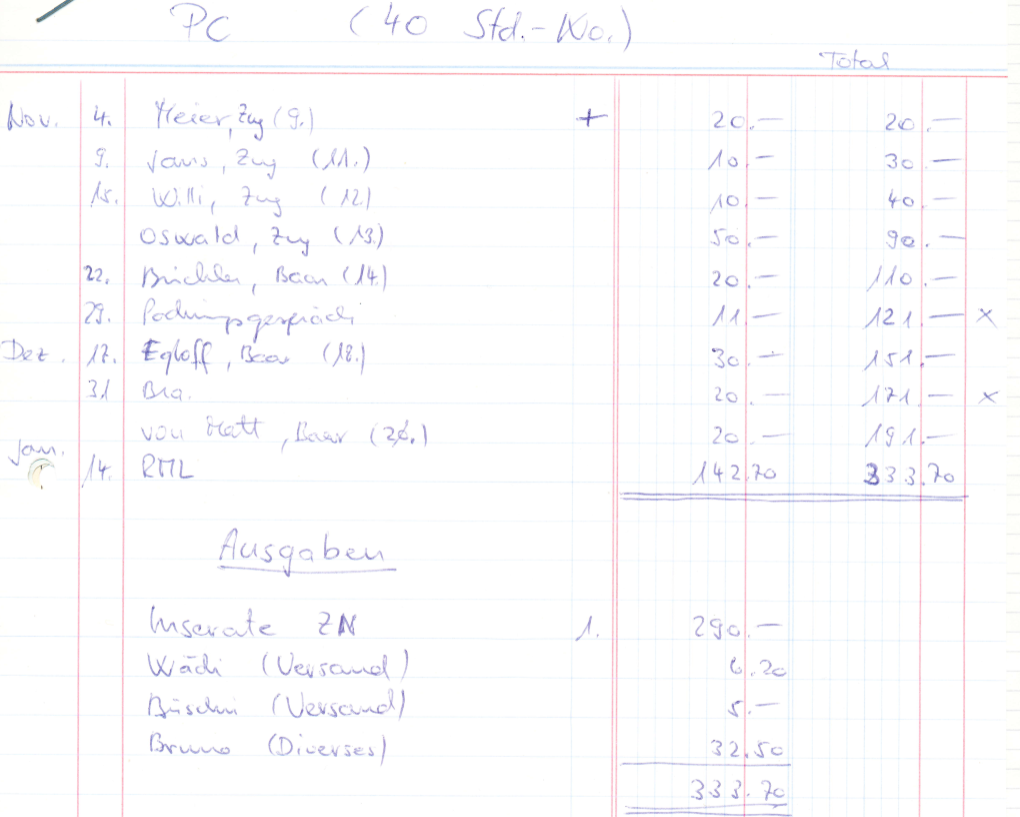 PC (40 Std.-Wo.)
Total
Nov. 4. Meier, Zug (9.) + 20.— 20.—
9. Jans, Zug (11.) 10.— 30.—
15. Willi, Zug (12.) 10.— 40.—
Oswald, Zug (13.) 50.— 90.—
22. Büchler, Baar (14.) 20.— 110.—
29. 11.— 121.— x
Dez. 17. Egloff, Baar (18.) 30.— 151.—
31 Bra. 20.— 171.— x
von Matt, Baar (26.) 20.— 191.—
Jan. 14. RML 142.70 333.70
Ausgaben
Inserate ZN 1. 290.—
Wädi (Versand) 6.20
Büschi (Versand) 5.—
Bruno (Diverses) 32.50
333.70